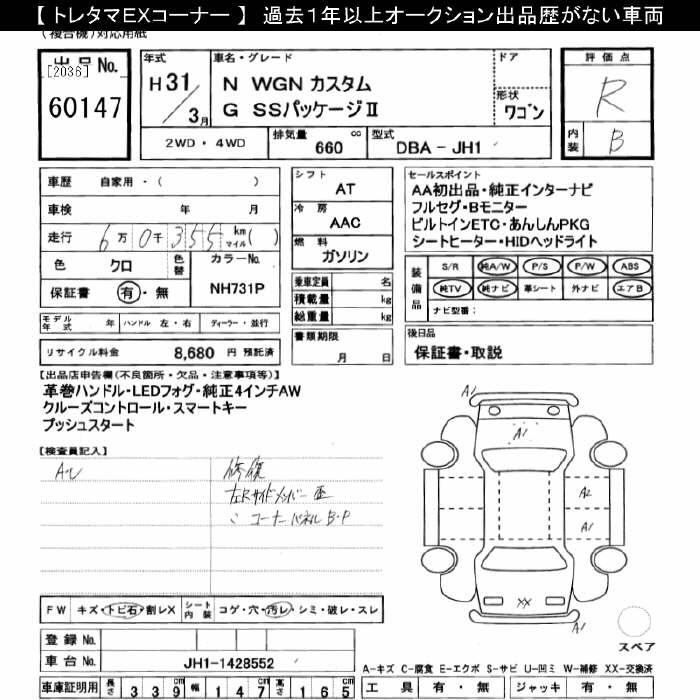 【 トレタマEXコーナー 】 過去1年以上オークション出品歴がない車両
(複合機)対応用紙
出品No.
[2036]
60147
年式
H31/3月
車名・グレード
N WGN カスタム
G SSパッケージⅡ
ドア
形状
ワゴン
評価点
R
内装
B
2WD・4WD
排気量 660 cc
型式 DBA - JH1
車歴 自家用・( )
車検 年 月
走行 6万0千355 km マイル( )
色 クロ 色替
カラーNo. NH731P
保証書 有・無
モデル年式 年 ハンドル 左・右 ディーラー・並行
リサイクル料金 8,680 円 預託済
シフト
AT
冷房
AAC
燃料
ガソリン
乗車定員 名
積載量 kg
総重量 kg
書類期限
月 日
セールスポイント
AA初出品・純正インターナビ
フルセグ・Bモニター
ビルトインETC・あんしんPKG
シートヒーター・HIDヘッドライト
装備品
S/R 純A/W P/S P/W ABS
純TV 純ナビ 革シート 外ナビ エアB
ナビ型番:
後日品
保証書・取説
【出品店申告欄(不良箇所・欠品・注意事項等)】
革巻ハンドル・LEDフォグ・純正4インチAW
クルーズコントロール・スマートキー
プッシュスタート
【検査員記入】
修復
左Rサイドメンバー 歪
〃 コーナーパネル B・P
A1
A1
A2
A1
XX
A1
スペア
FW キズ・トビ石・割レX
シート内装 コゲ・穴・汚レ・シミ・破レ・スレ
登録 No.
車台 No. JH1-1428552
車庫証明用 長さ 339 cm 幅 147 cm 高さ 165 cm
A-キズ C-腐食 E-エクボ S-サビ U-凹ミ W-補修 XX-交換済
工具 有・無 ジャッキ 有・無